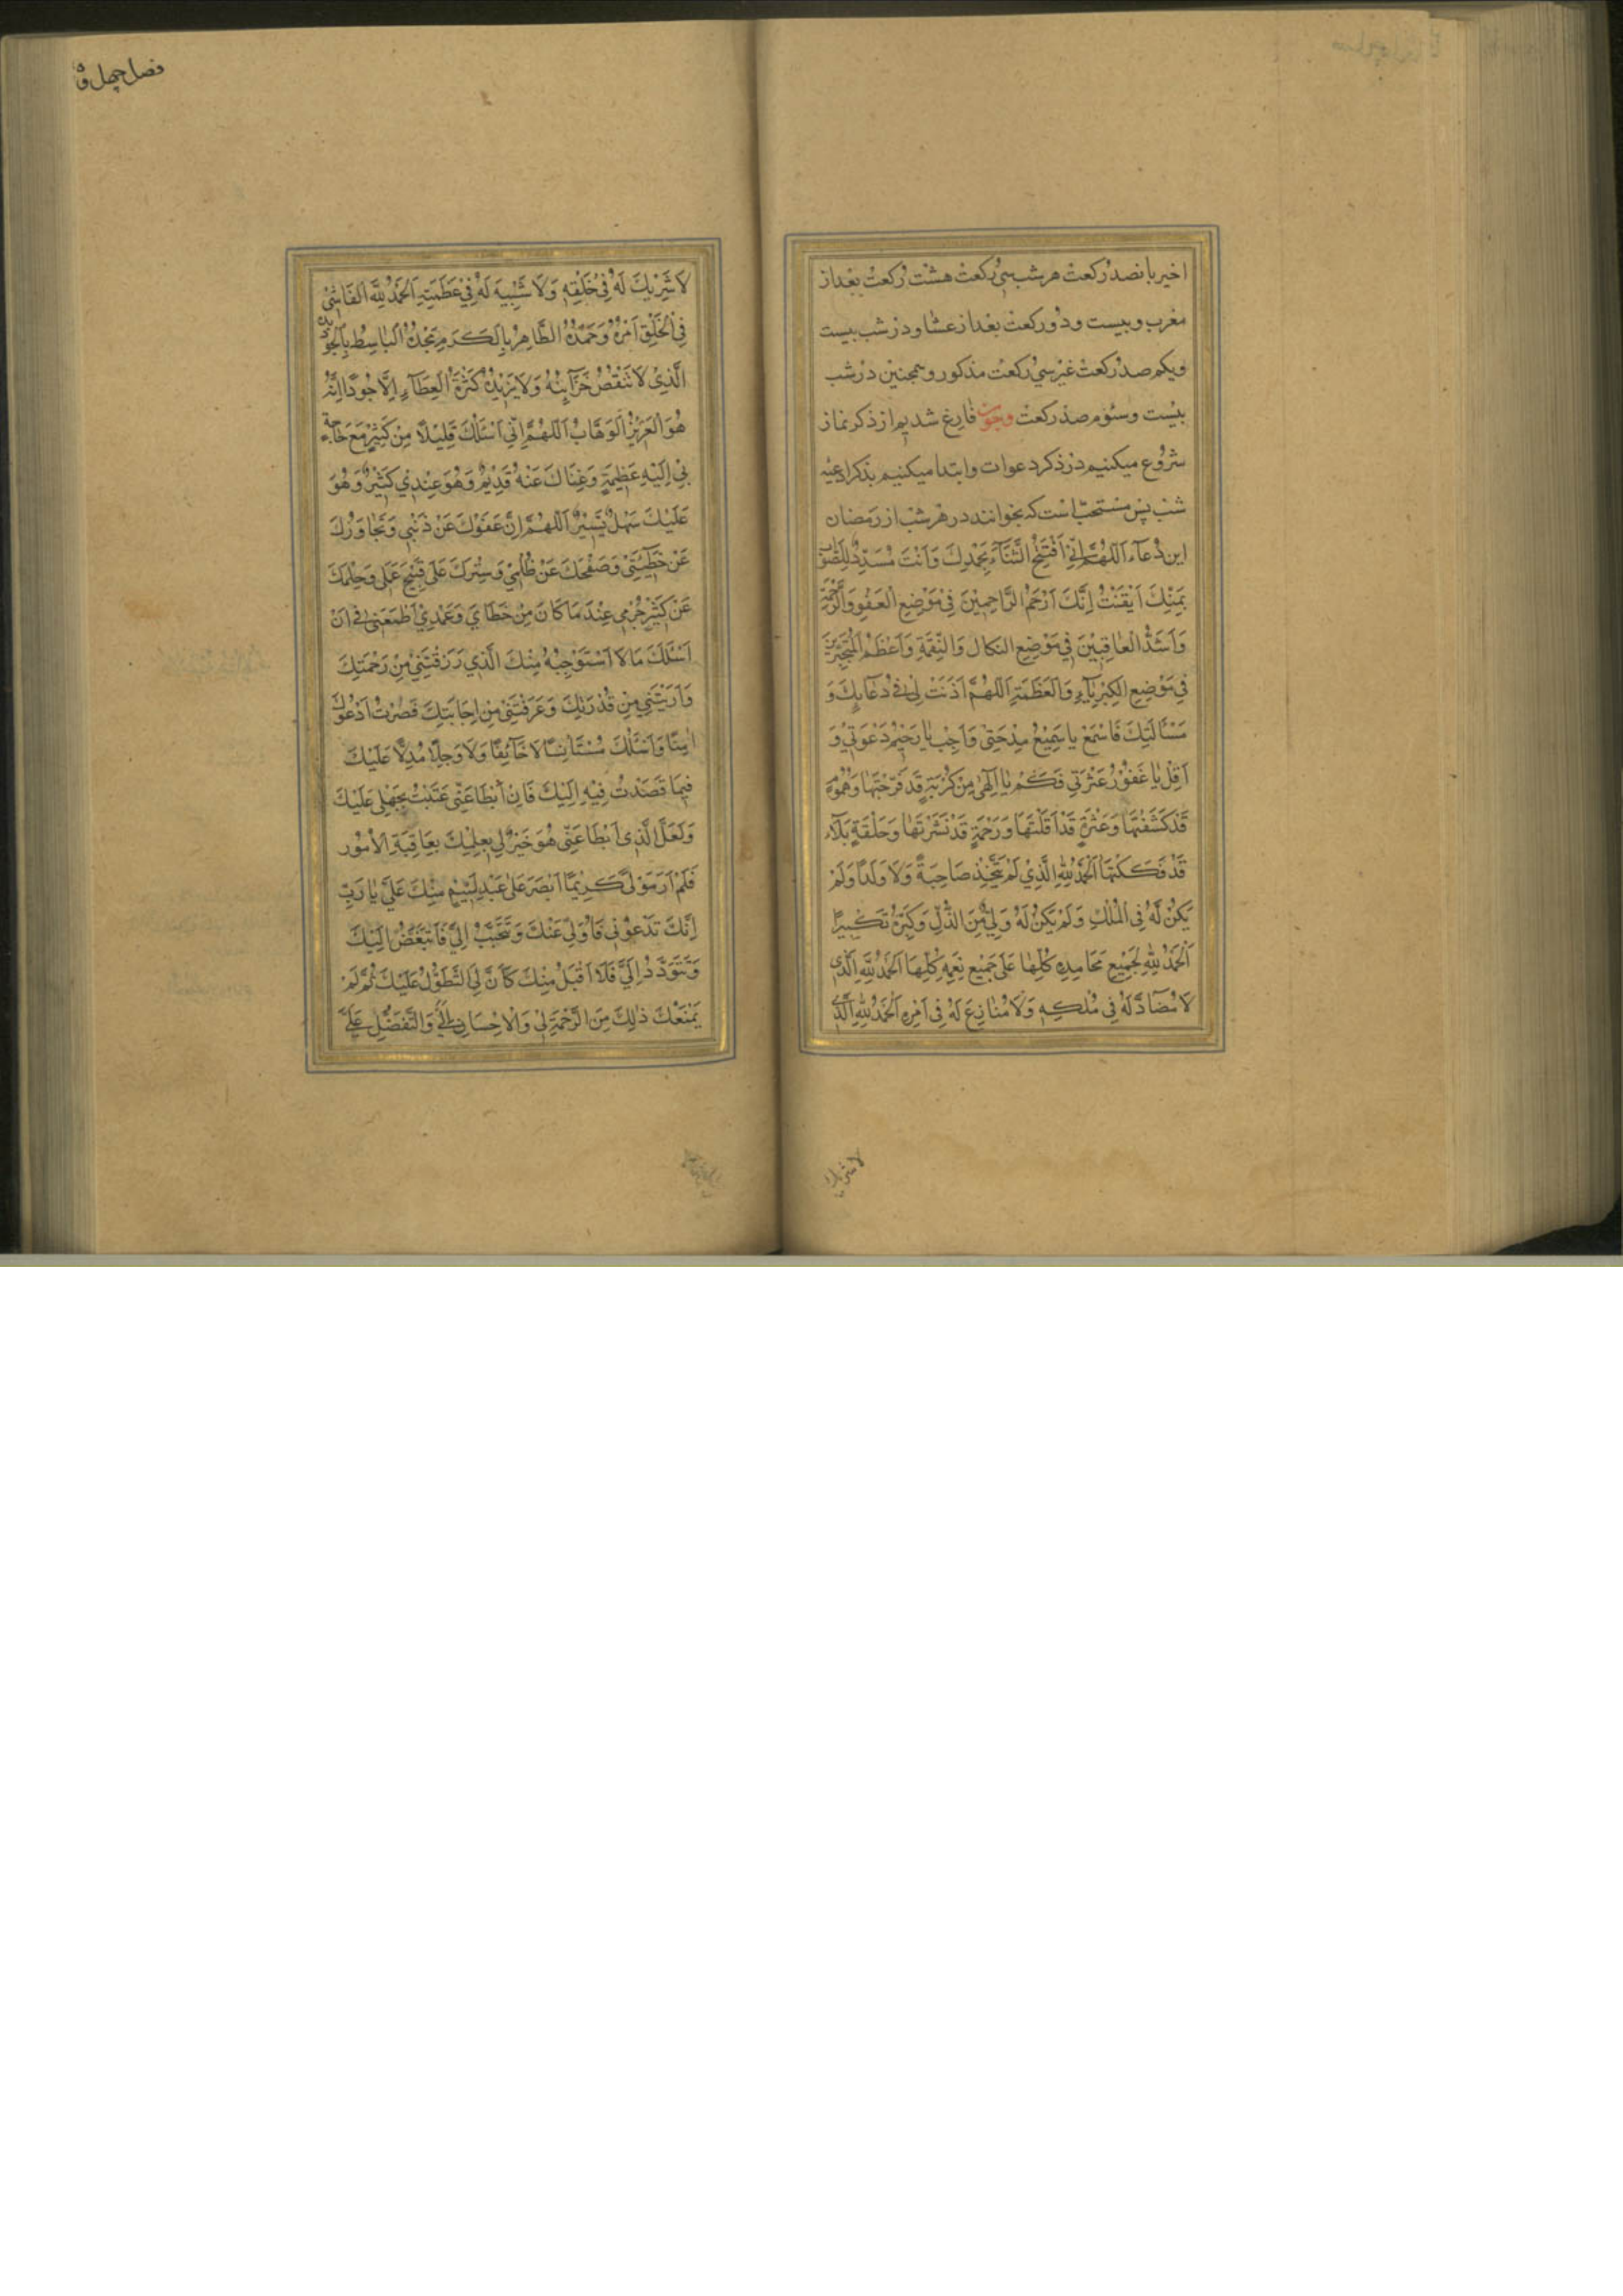 اخیر پانصد رکعت هر شب سی رکعت هشت رکعت بعد از
مغرب و بیست و دو رکعت بعد از عشا و در شب بیست
ویکم صد رکعت غیر سی رکعت مذکور و همچنین در شب
بیست و سوم صد رکعت وچون فارغ شدیم از ذکر نماز
شروع میکنیم در ذکر دعوات وابتدا میکنیم بذکر ادعیه
شب پس مستحب است که بخوانند در هر شب از رمضان
این دعاء اَللّهُمَّ اِنّی اَفْتَتِحُ الثَّنآءَ بِحَمْدِكَ وَاَنْتَ مُسَدِّدٌ لِلصَّوابِ
بِمَنِّكَ اَیْقَنْتُ اِنَّكَ اَرْحَمُ الرَّاحِمِیْنَ فِیْ مَوْضِعِ الْعَفْوِ وَالرَّحْمَةِ
وَاَشَدُّ الْمُعاقِبِیْنَ فِی مَوْضِعِ النَّكالِ وَالنَّقِمَةِ وَاَعْظَمُ الْمُتَجَبِّرِیْنَ
فِی مَوْضِعِ الْكِبْرِیآءِ وَالْعَظَمَةِ اَللّهُمَّ اَذِنْتَ لِی فی دُعآئِكَ وَ
مَسْاَلَتِكَ فَاسْمَعْ یا سَمِیْعُ مِدْحَتِی وَاَجِبْ یا رَحِیْمُ دَعْوَتِیْ وَ
اَقِلْ یا غَفُوْرُ عَثْرَتِی فَكَمْ یا اِلهی مِنْ كُرْبَةٍ قَدْ فَرَّجْتَها وَهُمُوْمٍ
قَدْ كَشَفْتَها وَعَثْرَةٍ قَدْ اَقَلْتَها وَرَحْمَةٍ قَدْ نَشَرْتَها وَحَلْقَةِ بَلآءٍ
قَدْ فَكَكْتَها اَلْحَمْدُ لِلّهِ الَّذِیْ لَمْ یَتَّخِذْ صَاحِبَةً وَلَا وَلَدًا وَلَمْ
یَكُنْ لَّهُ فِی الْمُلْكِ وَلَمْ یَكُنْ لَهُ وَلِیٌّ مِنَ الذُّلِّ وَكَبِّرْهُ تَكْبِیرًا
اَلْحَمْدُ لِلّهِ بِجَمِیْعِ مَحَامِدِهِ كُلِّها عَلَی جَمِیْعِ نِعَمِهِ كُلِّهَا اَلْحَمْدُ لِلّهِ الَّذِی
لَا مُضَآدَّ لَهُ فِی مُلْكِهِ وَلَا مُنَازِعَ لَهُ فِی اَمْرِهِ اَلْحَمْدُ لِلّهِ الَّذِی
لا شریك
فصل چهل و
لَا شَرِیْكَ لَهُ فِی خَلْقِهِ وَلَا شَبِیْهَ لَهُ فِیْ عَظَمَتِهِ اَلْحَمْدُ لِلّهِ الْفَاشِیْ
فِی الْخَلْقِ اَمْرُهُ وَحَمْدُهُ الظَّاهِرِ بِالْكَرَمِ مَجْدُهُ الْبَاسِطِ بِالْجُوْدِ یَدَهُ
الَّذِیْ لَا تَنْقُصُ خَزَآئِنُهُ وَلَا یَزِیْدُهُ كَثْرَةُ الْعَطَآءِ اِلَّا جُوْدًا اِنَّهُ
هُوَ الْعَزِیْزُ الْوَهَّابُ اَللّهُمَّ اِنِّی اَسْئَلُكَ قَلِیْلًا مِنْ كَثِیْرٍ مَعَ حَاجَةٍ
بِیْ اِلَیْهِ عَظِیْمَةٍ وَغِنَاكَ عَنْهُ قَدِیْمٌ وَهُوَ عِنْدِیْ كَثِیْرٌ وَهُوَ
عَلَیْكَ سَهْلٌ یَسِیْرٌ اَللّهُمَّ اِنَّ عَفْوَكَ عَنْ ذَنْبِی وَتَجَاوُزَكَ
عَنْ خَطِیْئَتِیْ وَصَفْحَكَ عَنْ ظُلْمِیْ وَسِتْرَكَ عَلَی قَبِیْحِ عَمَلِی وَحِلْمَكَ
عَنْ كَثِیْرِ جُرْمِی عِنْدَ مَا كَانَ مِنْ خَطَایَ وَعَمْدِیْ اَطْمَعَنِی فِی اَنْ
اَسْئَلَكَ مَا لَا اَسْتَوْجِبُهُ مِنْكَ الَّذِی رَزَقْتَنِیْ مِنْ رَحْمَتِكَ
وَاَرَیْتَنِی مِنْ قُدْرَتِكَ وَعَرَّفْتَنِیْ مِنْ اِجَابَتِكَ فَصِرْتُ اَدْعُوكَ
امِنًا وَاَسْئَلُكَ مُسْتَاْنِسًا لَا خَآئِفًا وَلَا وَجِلًا مُدِلًّا عَلَیْكَ
فِیْمَا قَصَدْتُ فِیْهِ اِلَیْكَ فَاِنْ اَبْطَا عَنِّی عَتَبْتُ بِجَهْلِی عَلَیْكَ
وَلَعَلَّ الَّذِی اَبْطَا عَنِّی هُوَ خَیْرٌ لِی بِعِلْمِكَ بِعَاقِبَةِ الْاُمُوْرِ
فَلَمْ اَرَ مَوْلًی كَرِیْمًا اَصْبَرَ عَلَی عَبْدٍ لَئِیْمٍ مِنْكَ عَلَیَّ یَا رَبِّ
اِنَّكَ تَدْعُوْنِی فَاُوَلِّی عَنْكَ وَتَتَحَبَّبُ اِلَیَّ فَاَتَبَغَّضُ اِلَیْكَ
وَتَتَوَدَّدُ اِلَیَّ فَلَا اَقْبَلُ مِنْكَ كَاَنَّ لِیَ التَّطَوُّلَ عَلَیْكَ ثُمَّ لَمْ
یَمْنَعْكَ ذلِكَ مِنَ الرَّحْمَةِ لِی وَالْاِحْسَانِ اِلَیَّ وَالتَّفَضُّلِ عَلَیَّ